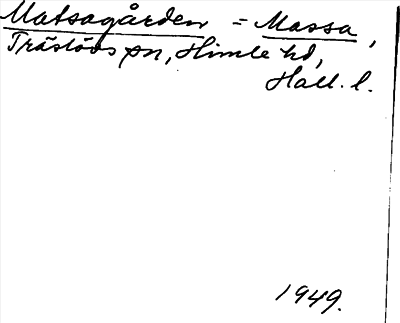 Matsagården = Massa,
Träslövs sn, Himle hd,
Hall. l.
1949.